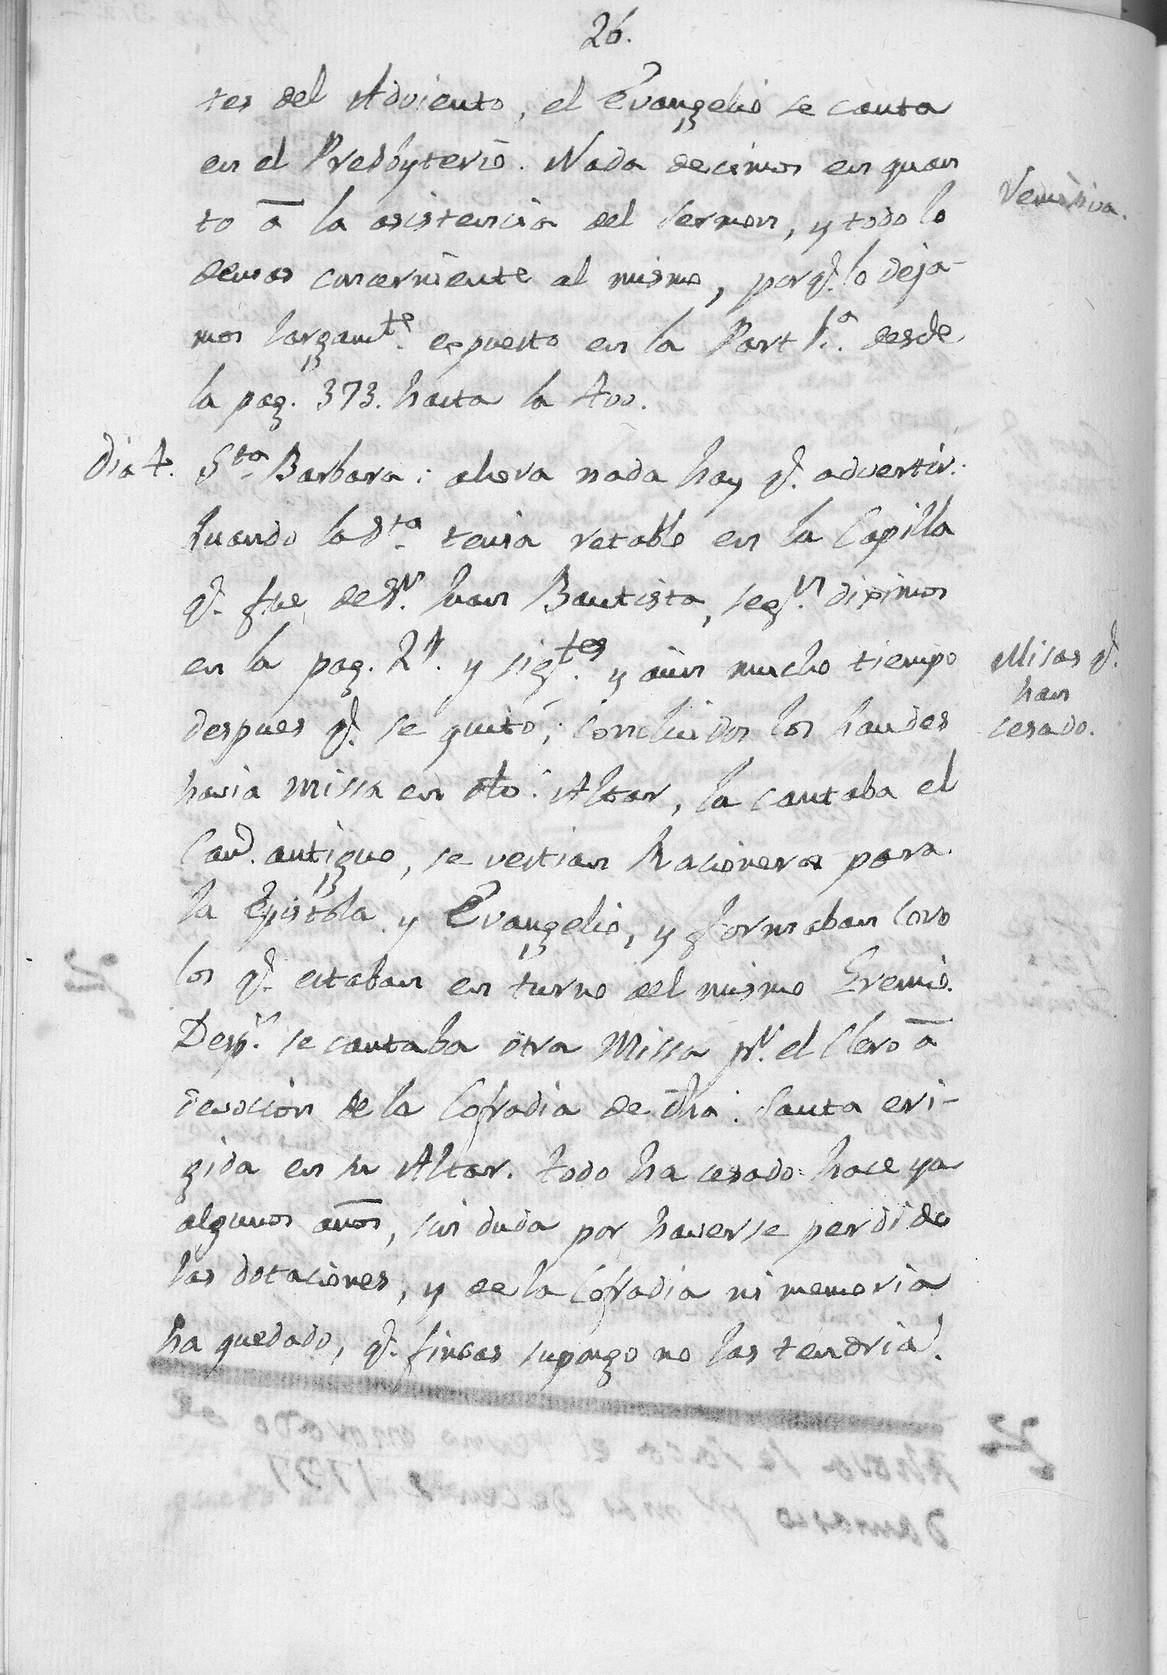 26.
tes del Adviento, el Evangelio se canta
en el Presbyterio. Nada decimos en quan
to à la asistencia del sermon, y todo lo
Remisiva.
demas concerniente al mismo, porq.e lo deja-
mos largam.te expuesto en la Part 1.a desde
la pag. 373. hasta la 400.
Dia 4. S.ta Barbara: ahora nada hay q.e advertir.
Quando la S.ta tenia retablo en la Capilla
q.e fue de S.n Juan Bautista, seg.n diximos
en la pag. y sig.tes y aun mucho tiempo
Misas q.e
han
cesado.
despues q.e se quitó; concluidos los Laudes
havia Missa en dho. Altar, la cantaba el
Can.o antiguo, se vestian Racioneros para
la Epistola y Evangelio, y formaban Coro
los q.e estaban en turno del mismo Gremio.
Desp.s se cantaba otra Missa p.r el Clero à
devocion de la Cofradia de dha. Santa eri-
gida en su Altar. todo ha cesado hace ya
algunos años, sin duda por haverse perdido
las dotaciones, y de la Cofradia ni memoria
ha quedado, q.e fincas supongo no las tendria.